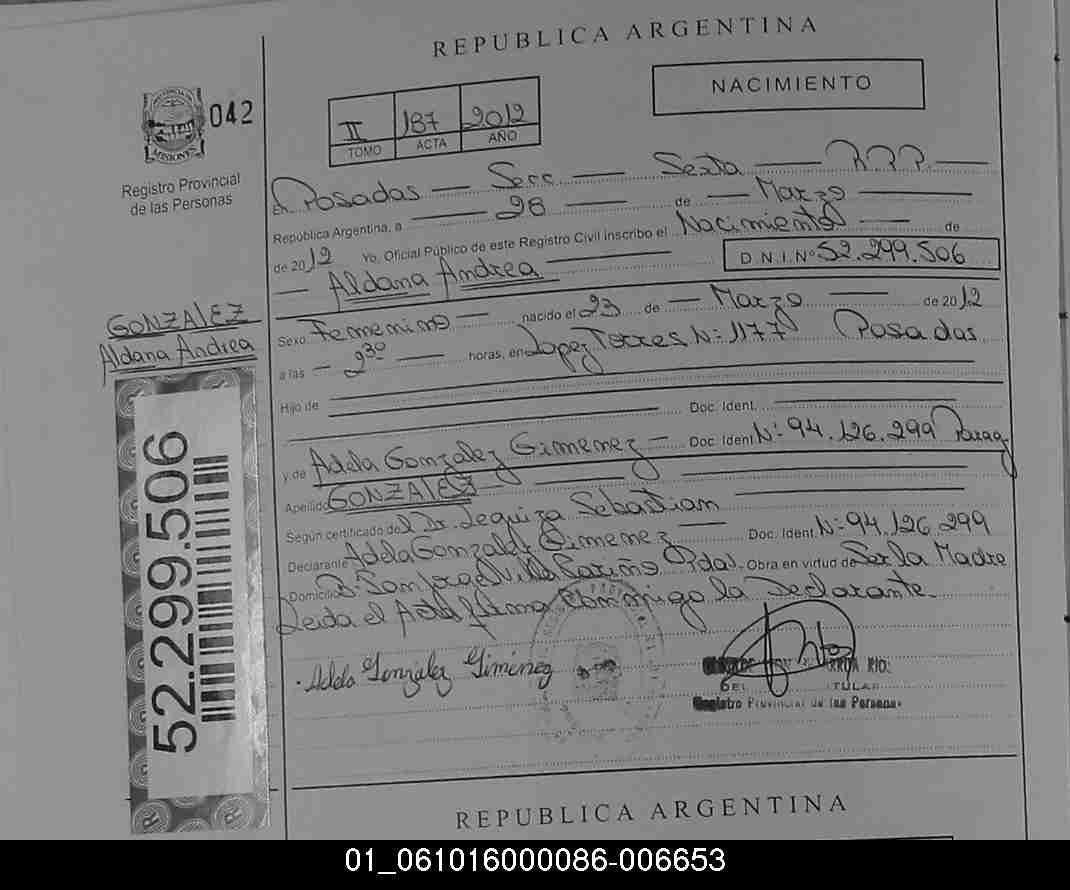 REPUBLICA ARGENTINA
042
MISIONES
Registro Provincial
de las Personas
II 187 2012
TOMO ACTA AÑO
NACIMIENTO
En Posadas — Secc. — Sexta — R.P.P. —
República Argentina, a — 28 — de — Marzo —
de 2012 Yo, Oficial Público de este Registro Civil inscribo el Nacimiento — de
— Aldana Andrea — D.N.I.Nº 52.299.506
GONZALEZ
Aldana Andrea
Sexo Femenino — nacido el 23 de — Marzo — de 2012
a las — 2:30 — horas, en Lopez Torres N: 1177 Posadas
Hijo de
Doc. Ident.
y de Adela Gonzalez Gimenez — Doc. Ident N: 94.126.299 Parag
Apellido GONZALEZ
Según certificado del Dr. Sebastian
Declarante Adela Gonzalez Gimenez — Doc. Ident N: 94.126.299
Domicilio B: San Jorge Villa Pdas. Obra en virtud de Ser la Madre
Leida el Acta firma conmigo la Declarante.
Adela Gonzalez Giménez
DEL TITULAR
Registro Provincial de las Personas
52.299.506
REPUBLICA ARGENTINA
01_061016000086-006653